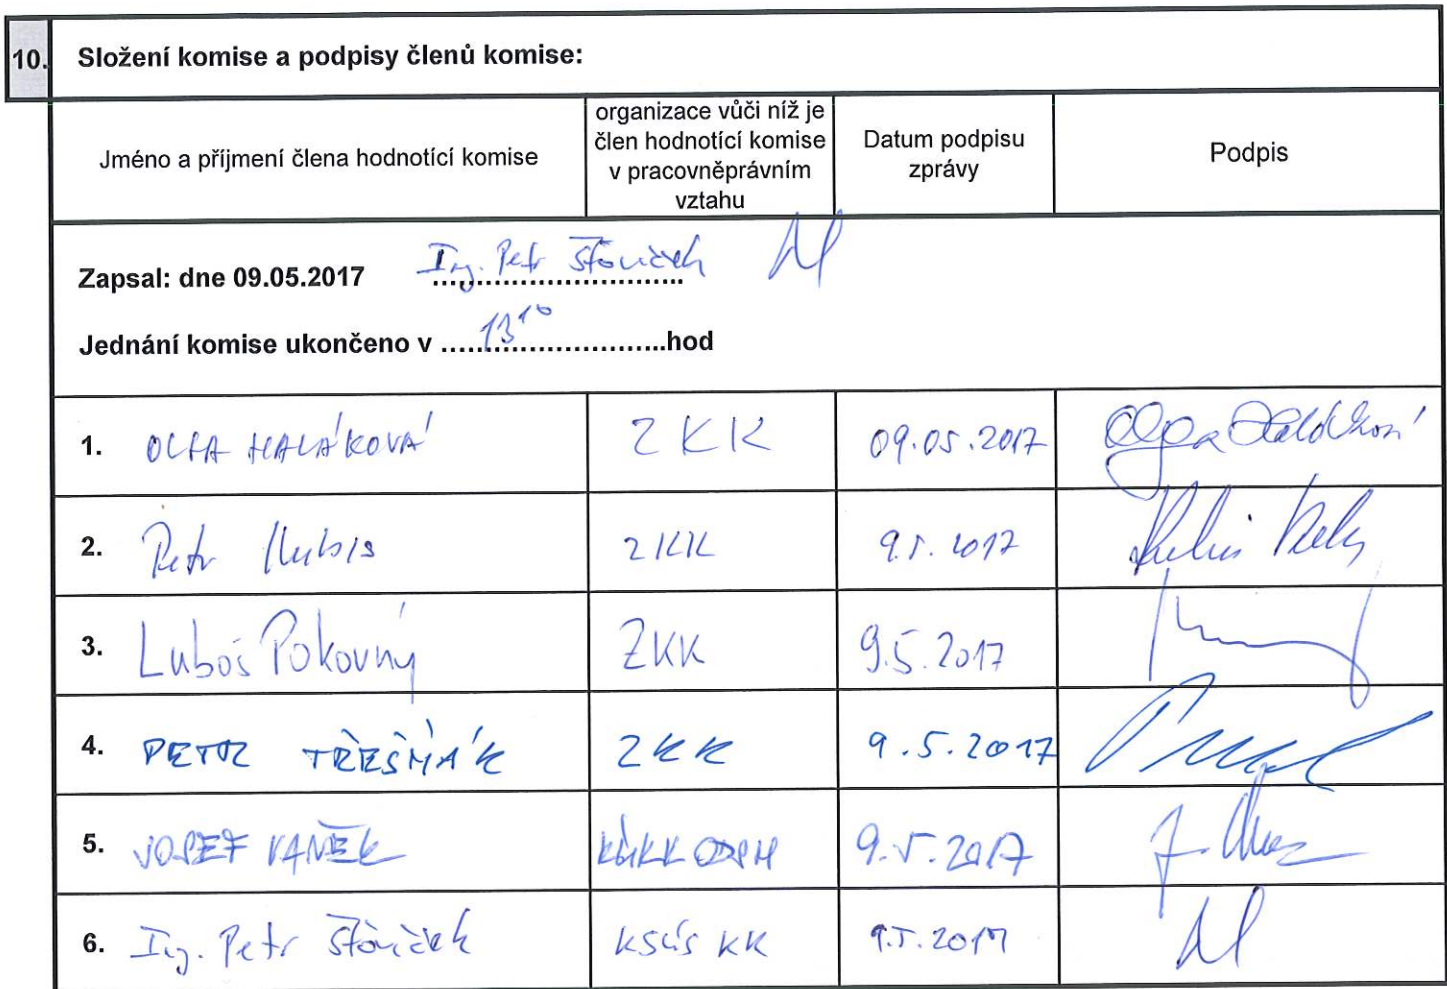 10. Složení komise a podpisy členů komise:
Jméno a příjmení člena hodnotící komise
organizace vůči níž je
člen hodnotící komise
v pracovněprávním
vztahu
Datum podpisu
zprávy
Podpis
Zapsal: dne 09.05.2017 Ing. Petr Šťovíček
Jednání komise ukončeno v 13¹⁰ hod
1. OLGA HALÁKOVÁ ZKK 09.05.2017
2. Petr Kubis ZKK 9.5.2017
3. Luboš Pokovný ZKK 9.5.2017
4. PETR TŘEŠŇÁK ZKK 9.5.2017
5. JOSEF VANĚK 9.5.2017
6. Ing. Petr Šťovíček KSÚS KK 9.5.2017